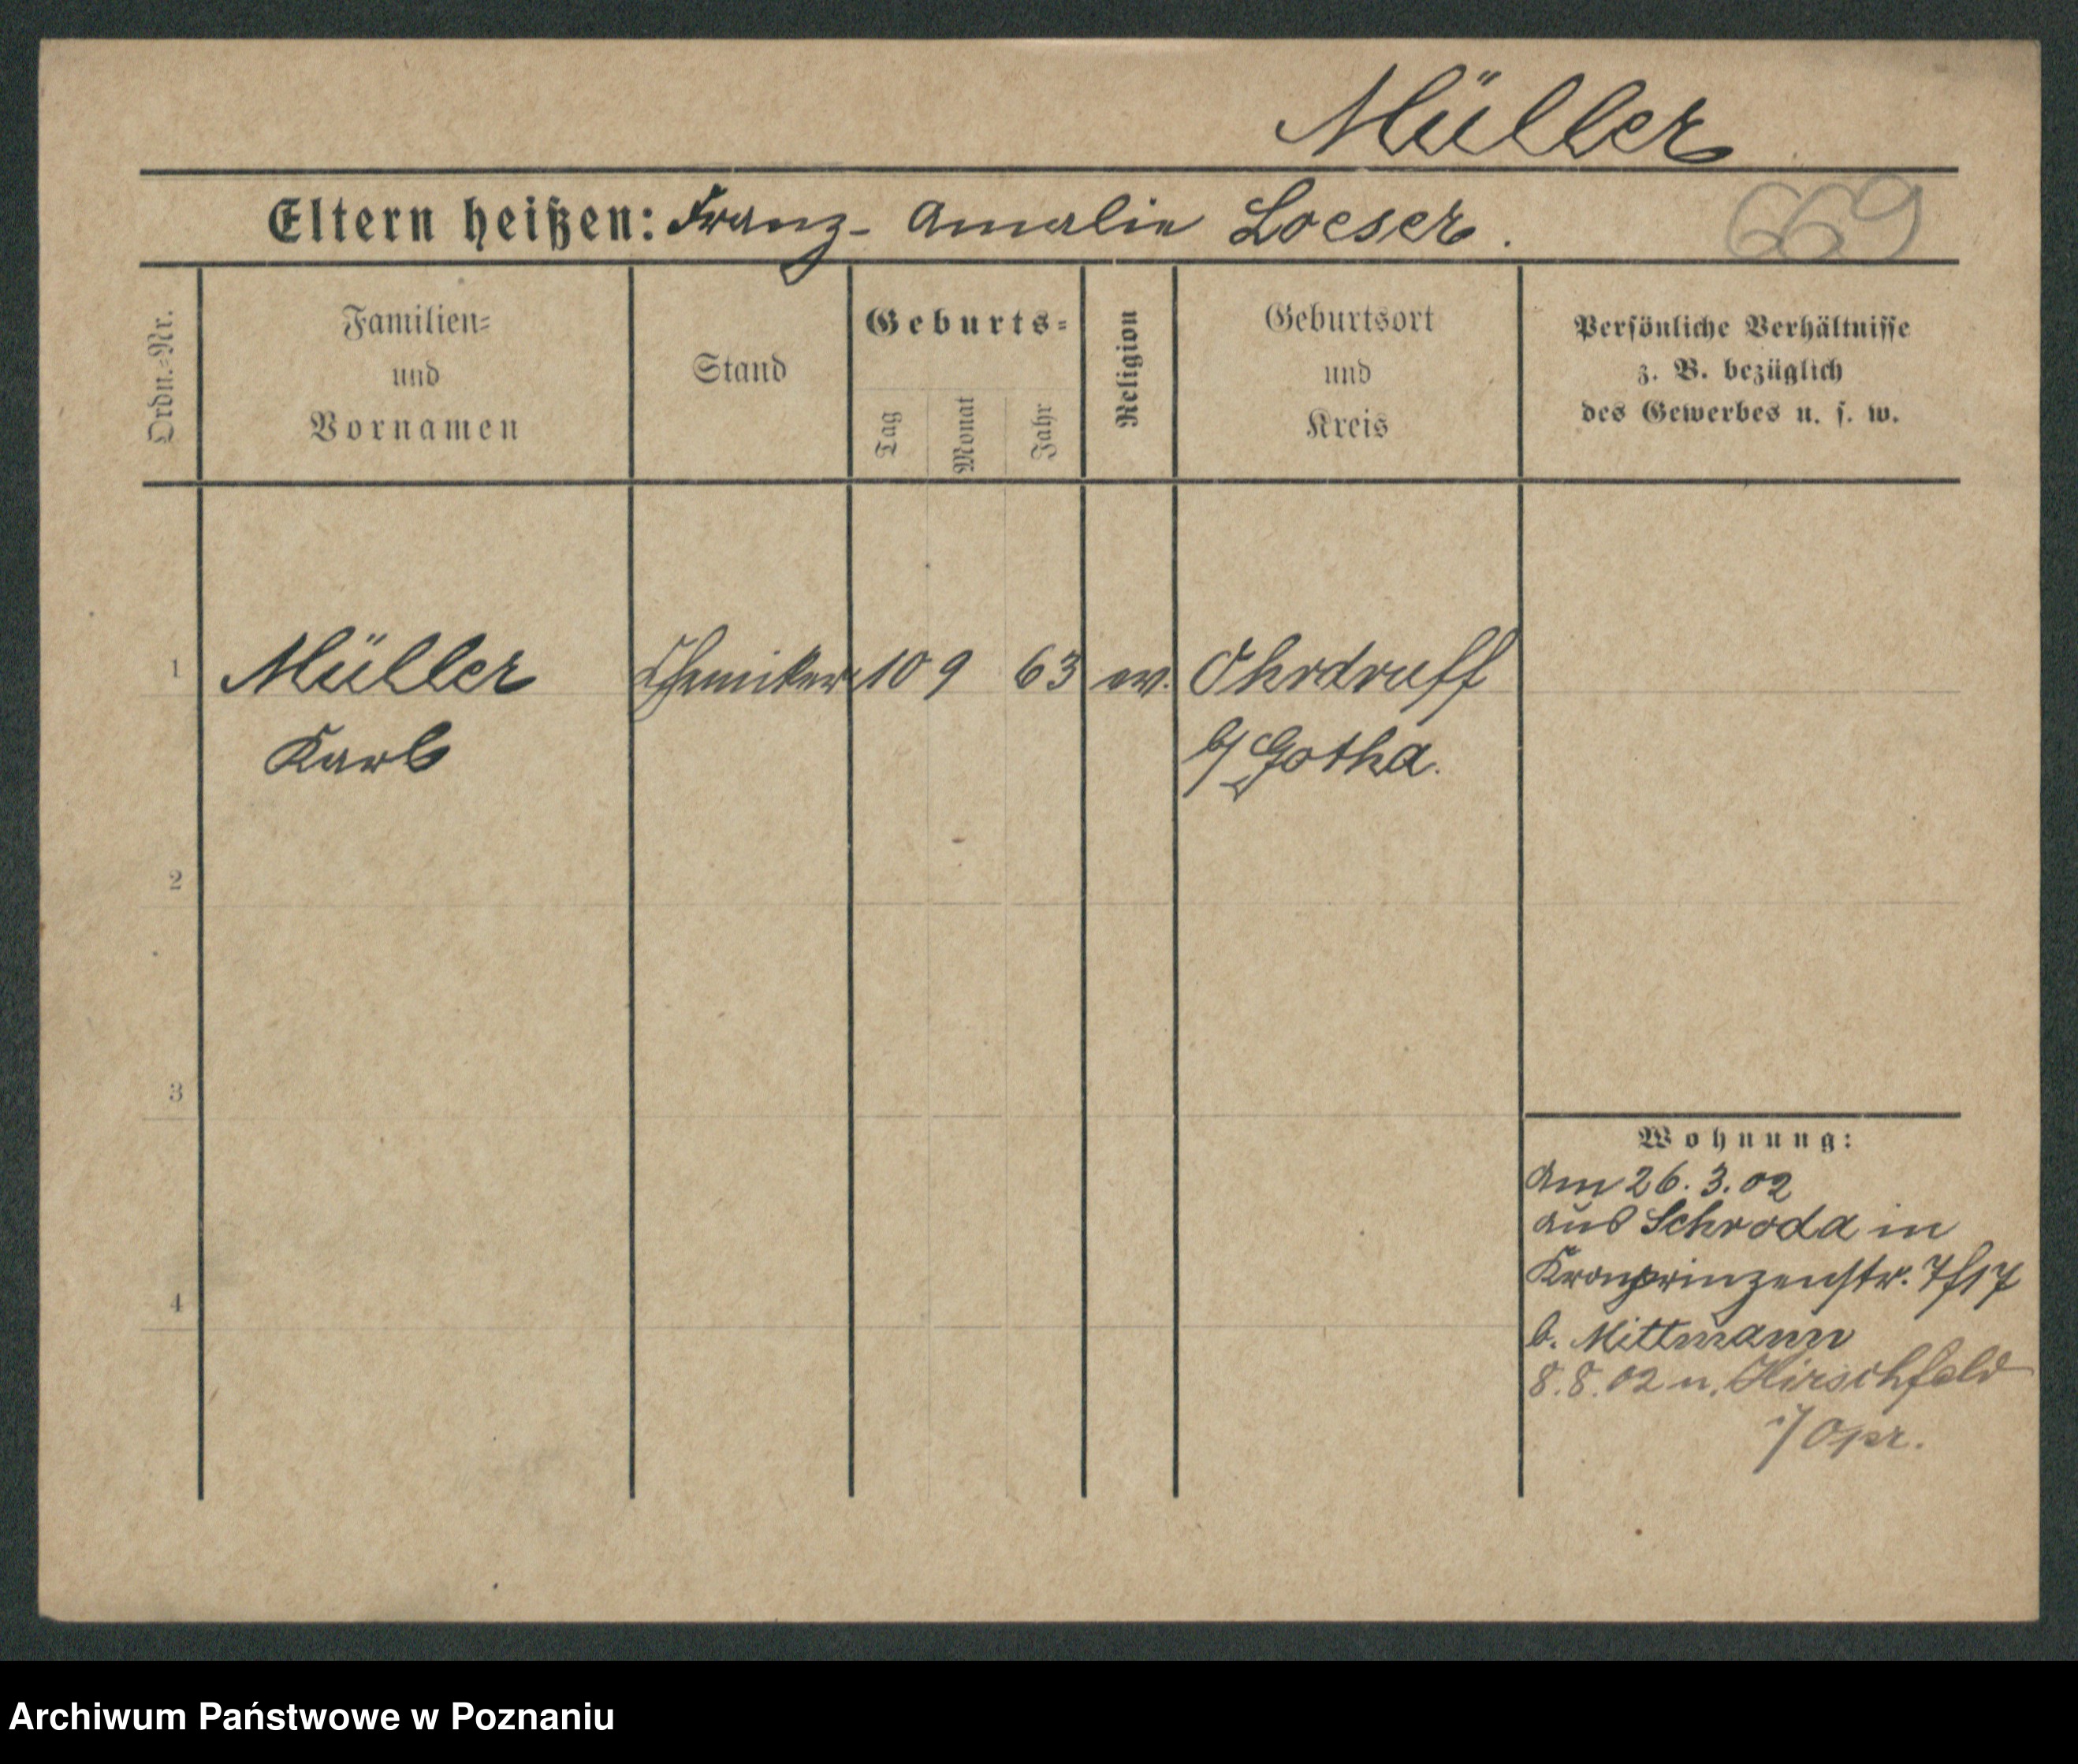 Müller
Eltern heißen: Franz - Amalie Loeser.
669
Ordn.-Nr.
Familien-
und
Vornamen
Stand
Geburts-
Tag
Monat
Jahr
Religion
Geburtsort
und
Kreis
Persönliche Verhältnisse
z. B. bezüglich
des Gewerbes u. s. w.
1 Müller Chemiker 10 9 63 ev. Ohrdruff
Karl b/ Gotha.
2
3
4
Wohnung:
Am 26. 3. 02
aus Schroda in
Kronprinzenstr. 7f17
b. Mittmann
8. 8. 02 n. Hirschfeld
i/ Opr.
Archiwum Państwowe w Poznaniu